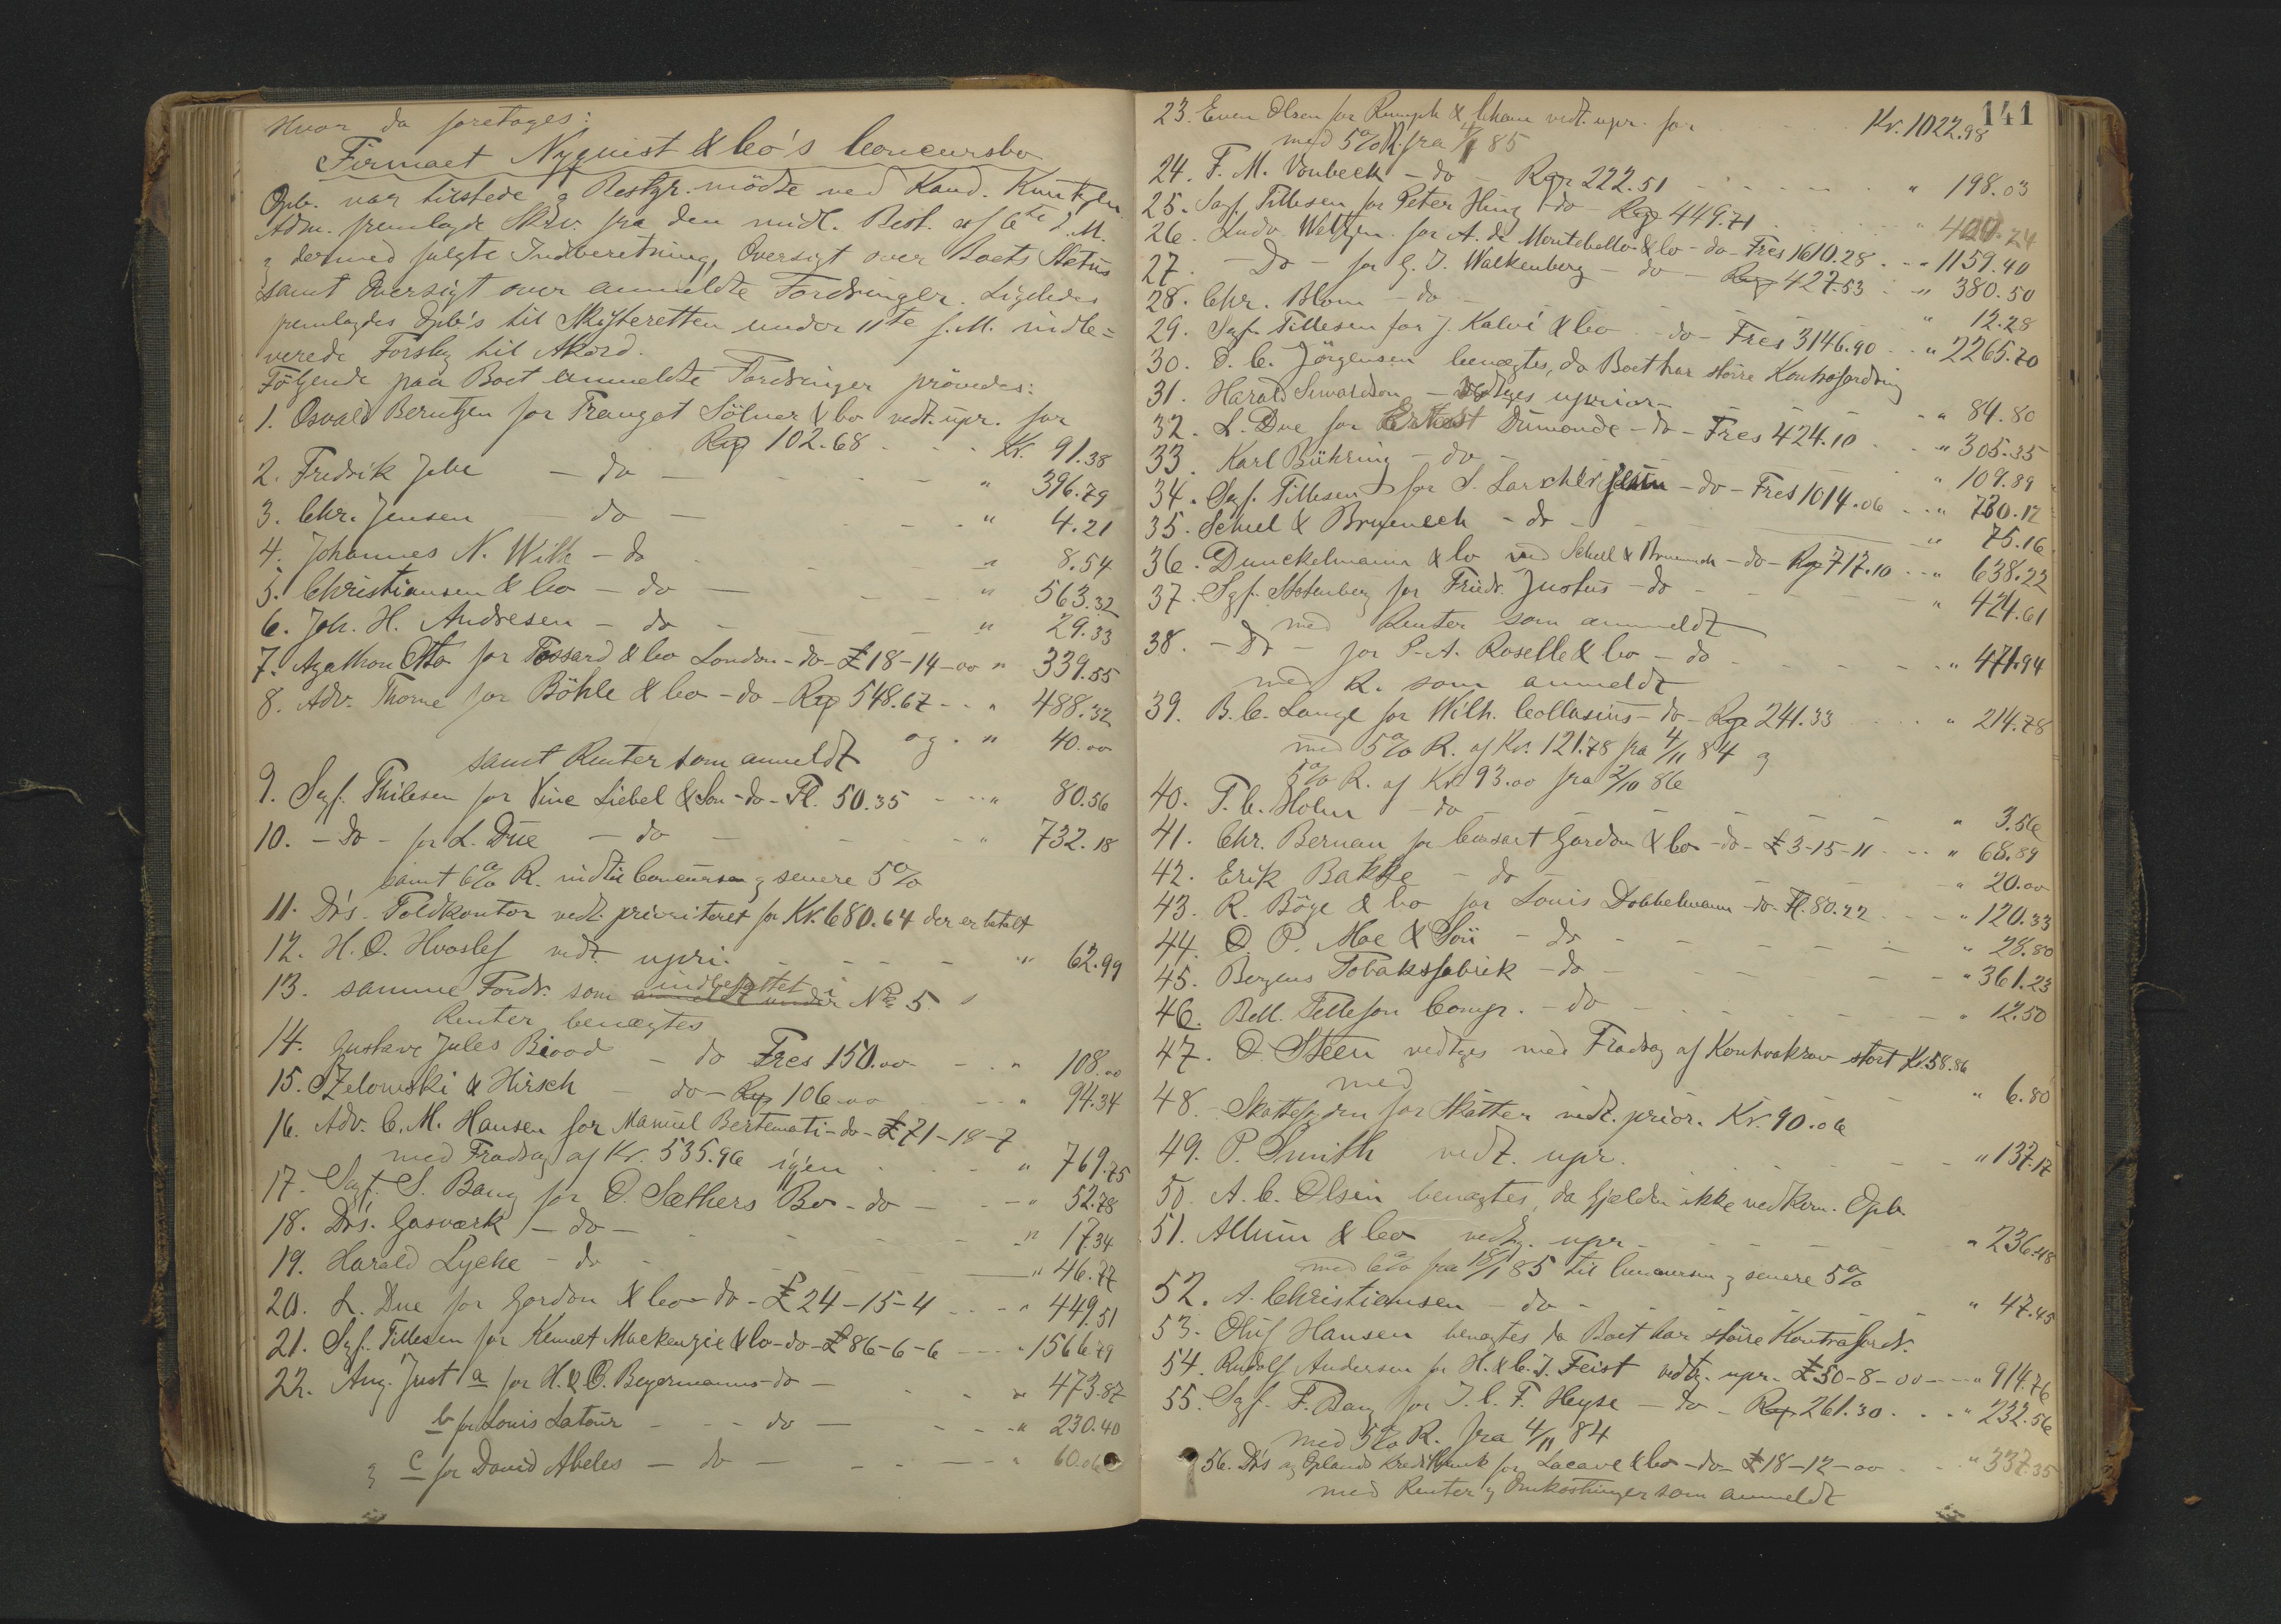 Hvor da foretages:
Firmaet Nyquist & Co's Concursbo
Opb. var tilstede og Bestyr. mödte ved Kand.
Adm. fremlagde Skrv. fra den midl. Best. af 6te d. M.
og dermed fulgte Indberetning, Oversigt over Boets Status
samt Oversigt over anmeldte Fordringer. Ligeledes
fremlagdes Opb's til Skifteretten under 11te s. M. indle=
verede Forslag til Akord.
Følgende paa Boet anmeldte Fordringer prövedes:
1. Osvald Berntzen for Traugot Sölner & Co vedt. upr. for
Rm 102.68 - - - Kr. 91.38
2. Fredrik Jebe - do - - - " 396.79
3. Chr. Jensen - do - - - " 4.21
4. Johannes N. With - do - - - " 8.54
5. Christiansen & Co - do - - - " 563.32
6. Joh. H. Andresen - do - - - " 29.33
7. Agathon Otto for Tossard & Co London - do - £ 18-14-00 " 339.55
8. Adv. Thorne for Böhle & Co - do - Rm 548.67 - - " 488.32
og . " 40.00
samt Renter som anmeldt
9. Sagf. Thilesen for Vine Liebel & Son - do - Fl. 50.35 - - " 80.56
10. - do - for L. Due - do - - - " 732.18
samt 6% R. indtil Concursen og senere 5%
11. Drs. Toldkontor vedt. prioriteret for Kr. 680.64 der er betalt
12. H. O. Hvoslef vedt. upri. - - - " 62.99
13. samme Fordr. som indbefattet i No 5
Renter benægtes
14. Gustave Jules Biood - do Frcs 150.00 - - " 108.00
15. Szelowski & Hirsch - do - Rm 106.00 - - " 94.34
16. Adv. C. M. Hansen for Manuel Bertemati - do - £ 71-18-7
med Fradrag af Kr. 535.96 igjen - - - " 769.75
17. Sagf. S. Bang for O. Sæthers Bo - do - - - " 52.78
18. Drs. Gasværk - do - - - " 17.34
19. Harald Lyche - do - - - " 46.77
20. L. Due for Gordon & Co - do - £ 24-15-4 - - " 449.51
21. Sagf. Tillesen for Kennet Mackenzie & Co - do - £ 86-6-6 - - " 1566.79
22. Aug. Just a for H. & O. Beyermanns - do - - - " 473.87
b for Louis Latour - - - do - - - " 230.40
og c for David Abeles - do - - - " 60.06
141
23. Even Olsen for Rumph & Cham vedt. upr. for - - - Kr. 1022.98
med 5% R. fra 85
24. F. M. Vonbeck - do - Rm 222.51 - - - " 198.03
25. Sagf. Tillesen for Peter Hing - do - Rm 449.71 - - - " 400.24
26. Ludv. Weltzin for A. de Montebello & Co - do - Frcs 1610.28 - - " 1159.40
27. - Do - for G. J. Walkenberg - do - Rm 427.53 - " 380.50
28. Chr. Blom - do - - - " 12.28
29. Sagf. Tillesen for J. Kalvi & Co - do - Frcs 3146.90 - - " 2265.70
30. D. C. Jörgensen benægtes, da Boet har större Kontrafordring
31. Harald Sivardson - vedtages uprior - - - " 84.80
32. L. Due for Ernest Dumonde - do - Frcs 424.10 - - " 305.35
33. Karl Bühring - do - - - " 109.89
34. Sagf. Tillesen for S. Larcher - do - Frcs 1014.06 - - " 730.12
35. Scheel & Bruenech - do - - - " 75.16
36. Dunckelmann & Co ved Scheel & Bruenech - do - Rm 717.10 - - " 638.22
37. Sagf. Stotenberg for Friedr. Justus - do - - - " 424.61
med Renter som anmeldt
38. - Do - for P. A. Roselle & Co - do - - - " 471.94
med R. som anmeldt
39. B. C. Lange for Wilh. Collasius - do - Rm 241.33 - - - " 214.78
med 5% R. af Kr. 121.78 fra 4/11 84 og
5% R. af Kr. 93.00 fra 2/10 86
40. T. C. Holm - do - - - " 3.56
41. Chr. Bernau for Cossart Gordon & Co - do - £ 3-15-11 - - " 68.89
42. Erik Bakke - do - - - " 20.00
43. R. Böge & Co for Louis Dobbelmann - do - Fl. 80.22 - - - " 120.33
44. O. P. Moe & Sön - do - - - " 28.80
45. Bergens Tobaksfabrik - do - - - " 361.23
46. Bell. Telefon Comp. - do - - - " 12.50
47. O. Steen vedtages med Fradrag af Kontrakrav stort Kr. 58.86
med - " 6.80
48. Skattefogden for Skatter vedt. prior. Kr. 90.06
49. P. Smith vedt. upr. - - - " 137.17
50. A. C. Olsen benægtes, da Gjælden ikke vedkom. Opb.
51. Allum & Co vedtg. upr. - - - " 236.48
med 6% fra 18/1 85 til Concursen og senere 5%
52. A. Christiansen - do - - - " 47.45
53. Oluf Hansen benægtes da Boet har större Kontrafordr.
54. Rudolf Andersen for H. & C. J. Feist vedtg. upr. £ 50-8-00 - - " 914.76
55. Sagf. F. Bang for J. C. F. Heyse - do - Rm 261.30 - - - " 232.56
med 5% R. fra 4/11 84
56. Drs og Oplands Kreditbank for Lacave & Co - do - £ 18-12-00 - - " 337.35
med Renter og Omkostninger som anmeldt